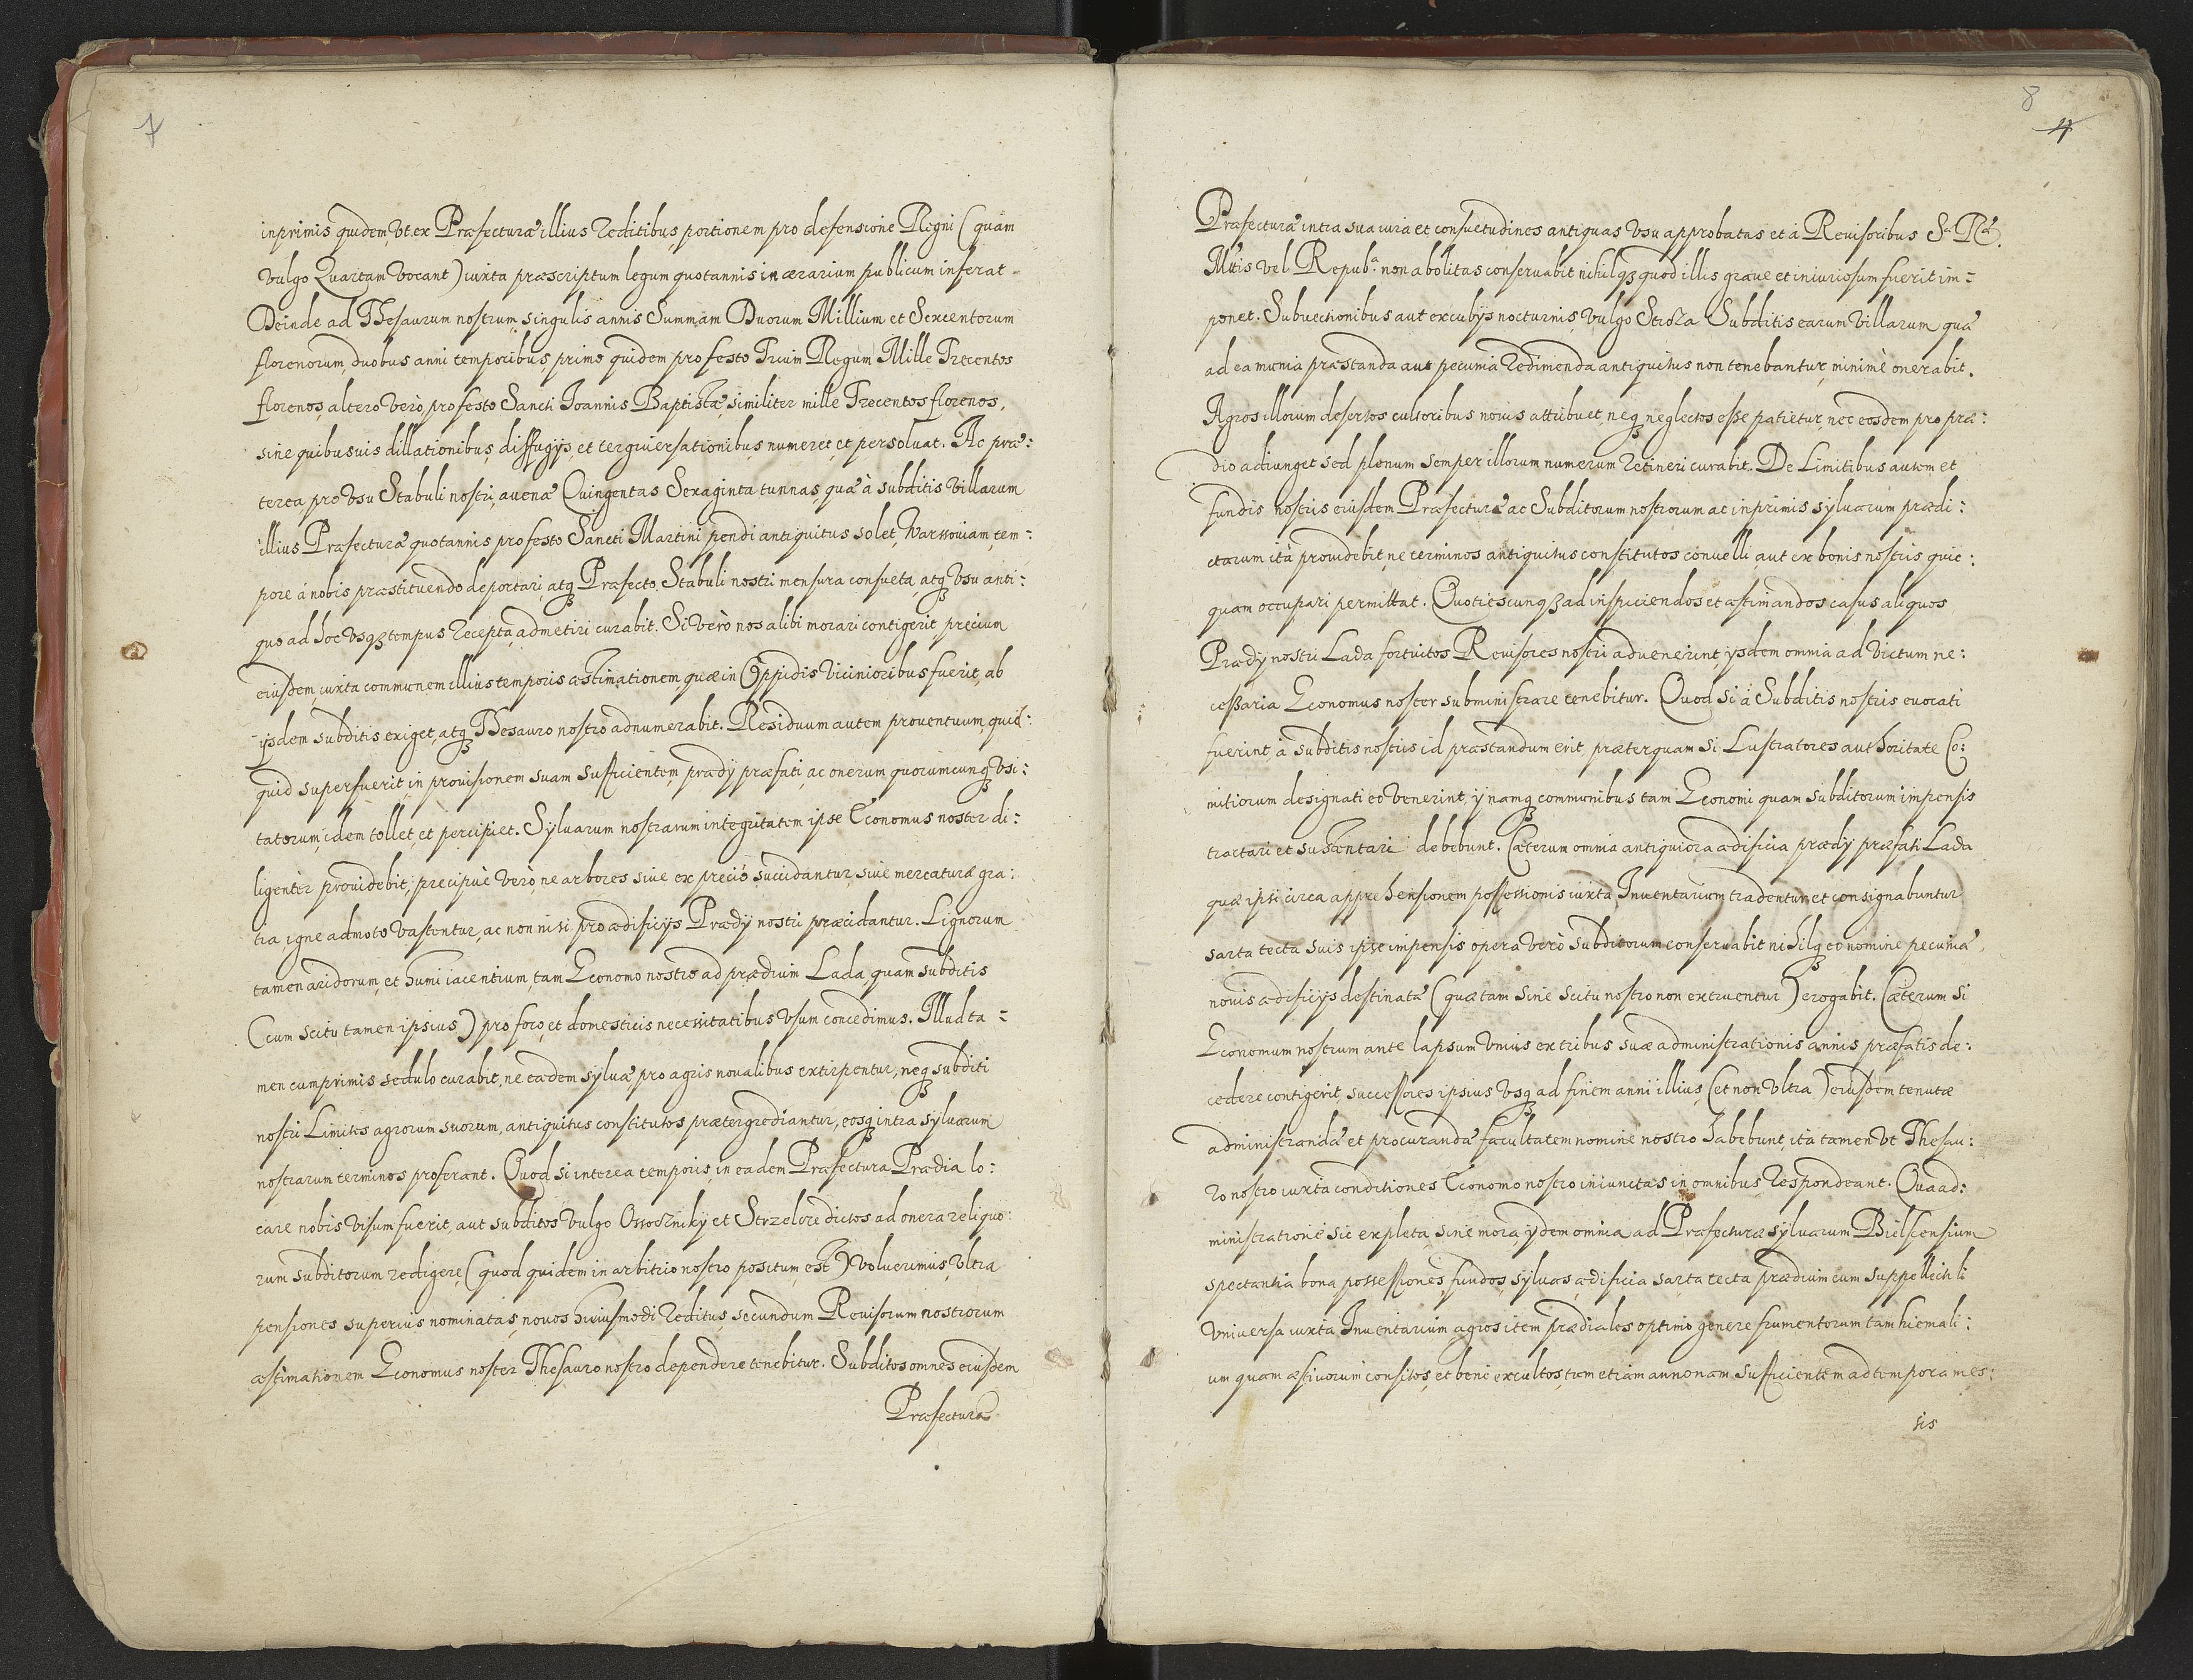 7
inprimis quidem, Vt ex Præfecturæ illius Reditibus, portionem pro defensione Regni (quam
Vulgo Quartam Vocant) iuxta præscriptum legum quotannis in ærarium publicum inferat -
Deinde ad Thesaurum nostrum, singulis annis Summam Duorum Millium et Sexcentorum
florenorum, duobus anni temporibus, primo quidem pro festo Trium Regum Mille Trecentos
florenos, altero Verò, pro festo Sancti Joannis Baptistæ, similiter mille Trecentos florenos,
sine quibusuis dillationibus, diffugijs, et tergiuersationibus, numeret, et persoluat. Ac præ:
terea, pro Vsu Stabuli nostri, auenæ Quingentas Sexaginta tunnas, quæ à subditis Villarum
illius Præfecturæ quotannis pro festo Sancti Martini pendi antiquitus solet, Warssouiam, tem:
pore á nobis præstituendo deportari, atq Præfecto Stabuli nostri mensura consueta, atq Vsu anti:
quo ad hoc Vsqz tempus recepta, admetiri curabit. Si Verò nos alibi morari contigerit, precium
eiusdem, iuxta communem illius temporis æstimationem, quæ in Oppidis Vicinioribus fuerit, ab
ijsdem subditis exiget, atq Thesauro nostro adnumerabit. Residuum autem prouentuum, quid:
quid superfuerit, in prouisionem suam sufficientem, prædij præfati, ac onerum quorumcunq Vsi:
tatorum, idem tollet, et percipiet. Syluarum nostrarum integritatem ipse Economus noster di:
ligenter prouidebit, precipuè Verò ne arbores siue ex precio succidantur, siue mercaturæ gra:
tia, igne admoto Vastentur, ac non nisi pro ædificijs Prædij nostri præcidantur. Lignorum
tamen aridorum, et humi iacentium, tam Economo nostro ad prædium Lada, quam subditis
(cum scitu tamen ipsius) pro foco, et domesticis necessitatibus Vsum concedimus. Illud ta =
men cumprimis sedulo curabit, ne eædem syluæ, pro agris noualibus extirpentur, neq subditi
nostri Limites agrorum suorum, antiquitus constitutos prætergrediantur, eosq intra syluarum
nostrarum terminos proferant. Quod si interea temporis, in eadem Præfectura Prædia lo:
care nobis Visum fuerit, aut subditos Vulgo Ossoczniky et Strzelce dictos ad onera reliquo:
rum subditorum redigere, (quod quidem in arbitrio nostro positum est) Voluerimus, Vltra
pensiones superius nominatas, nouos huiusmodi Reditus, secundum Reuisorum nostrorum
æstimationem Economus noster Thesauro nostro dependere tenebitur. Subditos omnes eiusdem
Præfecturæ
8
Præfecturæ intra sua iura et consuetudines antiquas Vsu approbatas et à Reuisoribus Sæ Ræ.
Mttis Vel Repub. non abolitas conseruabit nihilqz quod illis graue et iniuriosum fuerit im:
ponet. Subuectionibus aut excubijs nocturnis, Vulgo Stroza Subditis earum Villarum quæ
ad ea munia præstanda aut pecunia Redimenda antiquitus non tenebantur, minimè onerabit.
Agros illorum desertos cultoribus nouis attribuet, neq neglectos esse patietur, nec eosdem pro præ:
dio adiunget sed plenum semper illorum numerum Retineri curabit. De Limitibus autem et
fundis nostris eiusdem Præfecturæ ac Subditorum nostrorum ac inprimis syluarum prædi:
ctarum ità prouidebit, ne terminos antiquitus constitutos conuelli aut ex bonis nostris quic:
quam occupari permittat. Quotiescunqz ad inspiciendos et æstimandos casus aliquos
Prædij nostri Lada fortuitos Reuisores nostri aduenerint, ijsdem omnia ad Victum ne:
cessaria Economus noster subministrare tenebitur. Quod si á Subditis nostris euocati
fuerint, à subditis nostris id præstandum erit, præterquam si Lustratores authoritate Co:
mitiorum designati eo Venerint, ij namq communibus tam Economi quam subditorum impensis
tractari et sustentari debebunt. Cæterum omnia antiquiora ædificia prædij præfati Lada
quæ ipsi circa apprehensionem possessionis iuxta Inuentarium tradentur et consignabuntur
sarta tecta suis ipse impensis opera Verò subditorum conseruabit nihilq eo nomine pecuniæ
nouis ædificijs destinatæ (quæ tam sine scitu nostro non extruentur) erogabit. Cæterum si
Economum nostrum ante lapsum Vnius ex tribus suæ administrationis annis præfatis de:
cedere contigerit, successores ipsius Vsq ad finem anni illius, (et non Vltra) eiusdem tenutæ
administrandæ et procurandæ facultatem nomine nostro habebunt, ita tamen Vt Thesau:
ro nostro iuxta conditiones Economo nostro iniunctas in omnibus Respondeant. Qua ad:
ministratione sic expleta, sine mora, ijdem omnia ad Præfecturæ syluarum Bielscensium
spectantia bona, possessiones, fundos, syluas, ædificia sarta tecta prædium cum suppellectili
Vniuersa iuxta Inuentarium, agros item prædiales optimo genere frumentorum tam hiemali:
um quam æstiuorum consitos, et bene excultos, tum etiam annonam sufficientem ad tempora mes:
sis